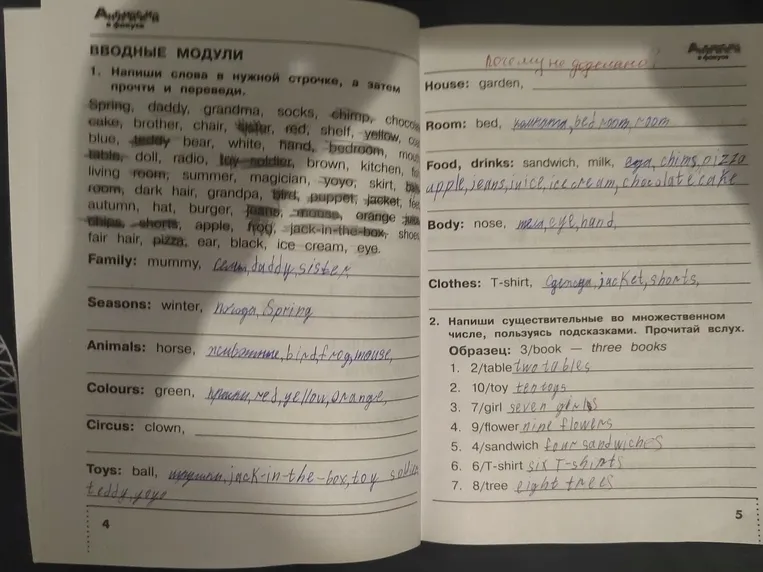 Английский
в фокусе
ВВОДНЫЕ МОДУЛИ
1. Напиши слова в нужной строчке, а затем
прочти и переведи.
Spring, daddy, grandma, socks, chimp,
cake, brother, chair, sister, red, shelf, yellow,
blue, teddy bear, white, hand, bedroom,
table, doll, radio, toy soldier, brown, kitchen,
living room, summer, magician, yoyo, skirt,
room, dark hair, grandpa, bird, puppet, jacket,
autumn, hat, burger, jeans, mouse, orange
chips, shorts, apple, frog, jack-in-the-box,
fair hair, pizza, ear, black, ice cream, eye.
Family: mummy, семья, daddy, sister,
Seasons: winter, погода, Spring
Animals: horse, животные, bird, frog, mouse,
Colours: green, краски, red, yellow, orange,
Circus: clown,
Toys: ball, игрушки, jack-in-the-box, toy
teddy, yoyo
4
Почему не доделано?
Английский
в фокусе
House: garden,
Room: bed, комната, bedroom, room
Food, drinks: sandwich, milk, еда, chips, pizza
apple, jeans, juice, ice cream, chocolate cake
Body: nose, тела, eye, hand,
Clothes: T-shirt, одежда, jacket, shorts,
2. Напиши существительные во множественном
числе, пользуясь подсказками. Прочитай вслух.
Образец: 3/book — three books
1. 2/table two tables
2. 10/toy ten toys
3. 7/girl seven girls
4. 9/flower nine flowers
5. 4/sandwich four sandwiches
6. 6/T-shirt six T-shirts
7. 8/tree eight trees
5